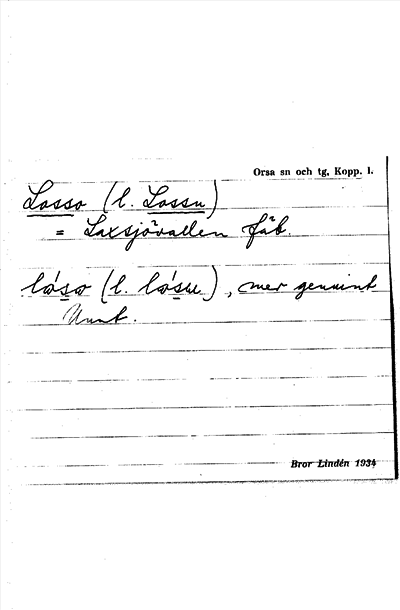 Orsa sn och tg, Kopp. l.
Losso (l. Lossu)
= Laxsjövallen fäb.
(l. , mer genuint
Bror Lindén 1934